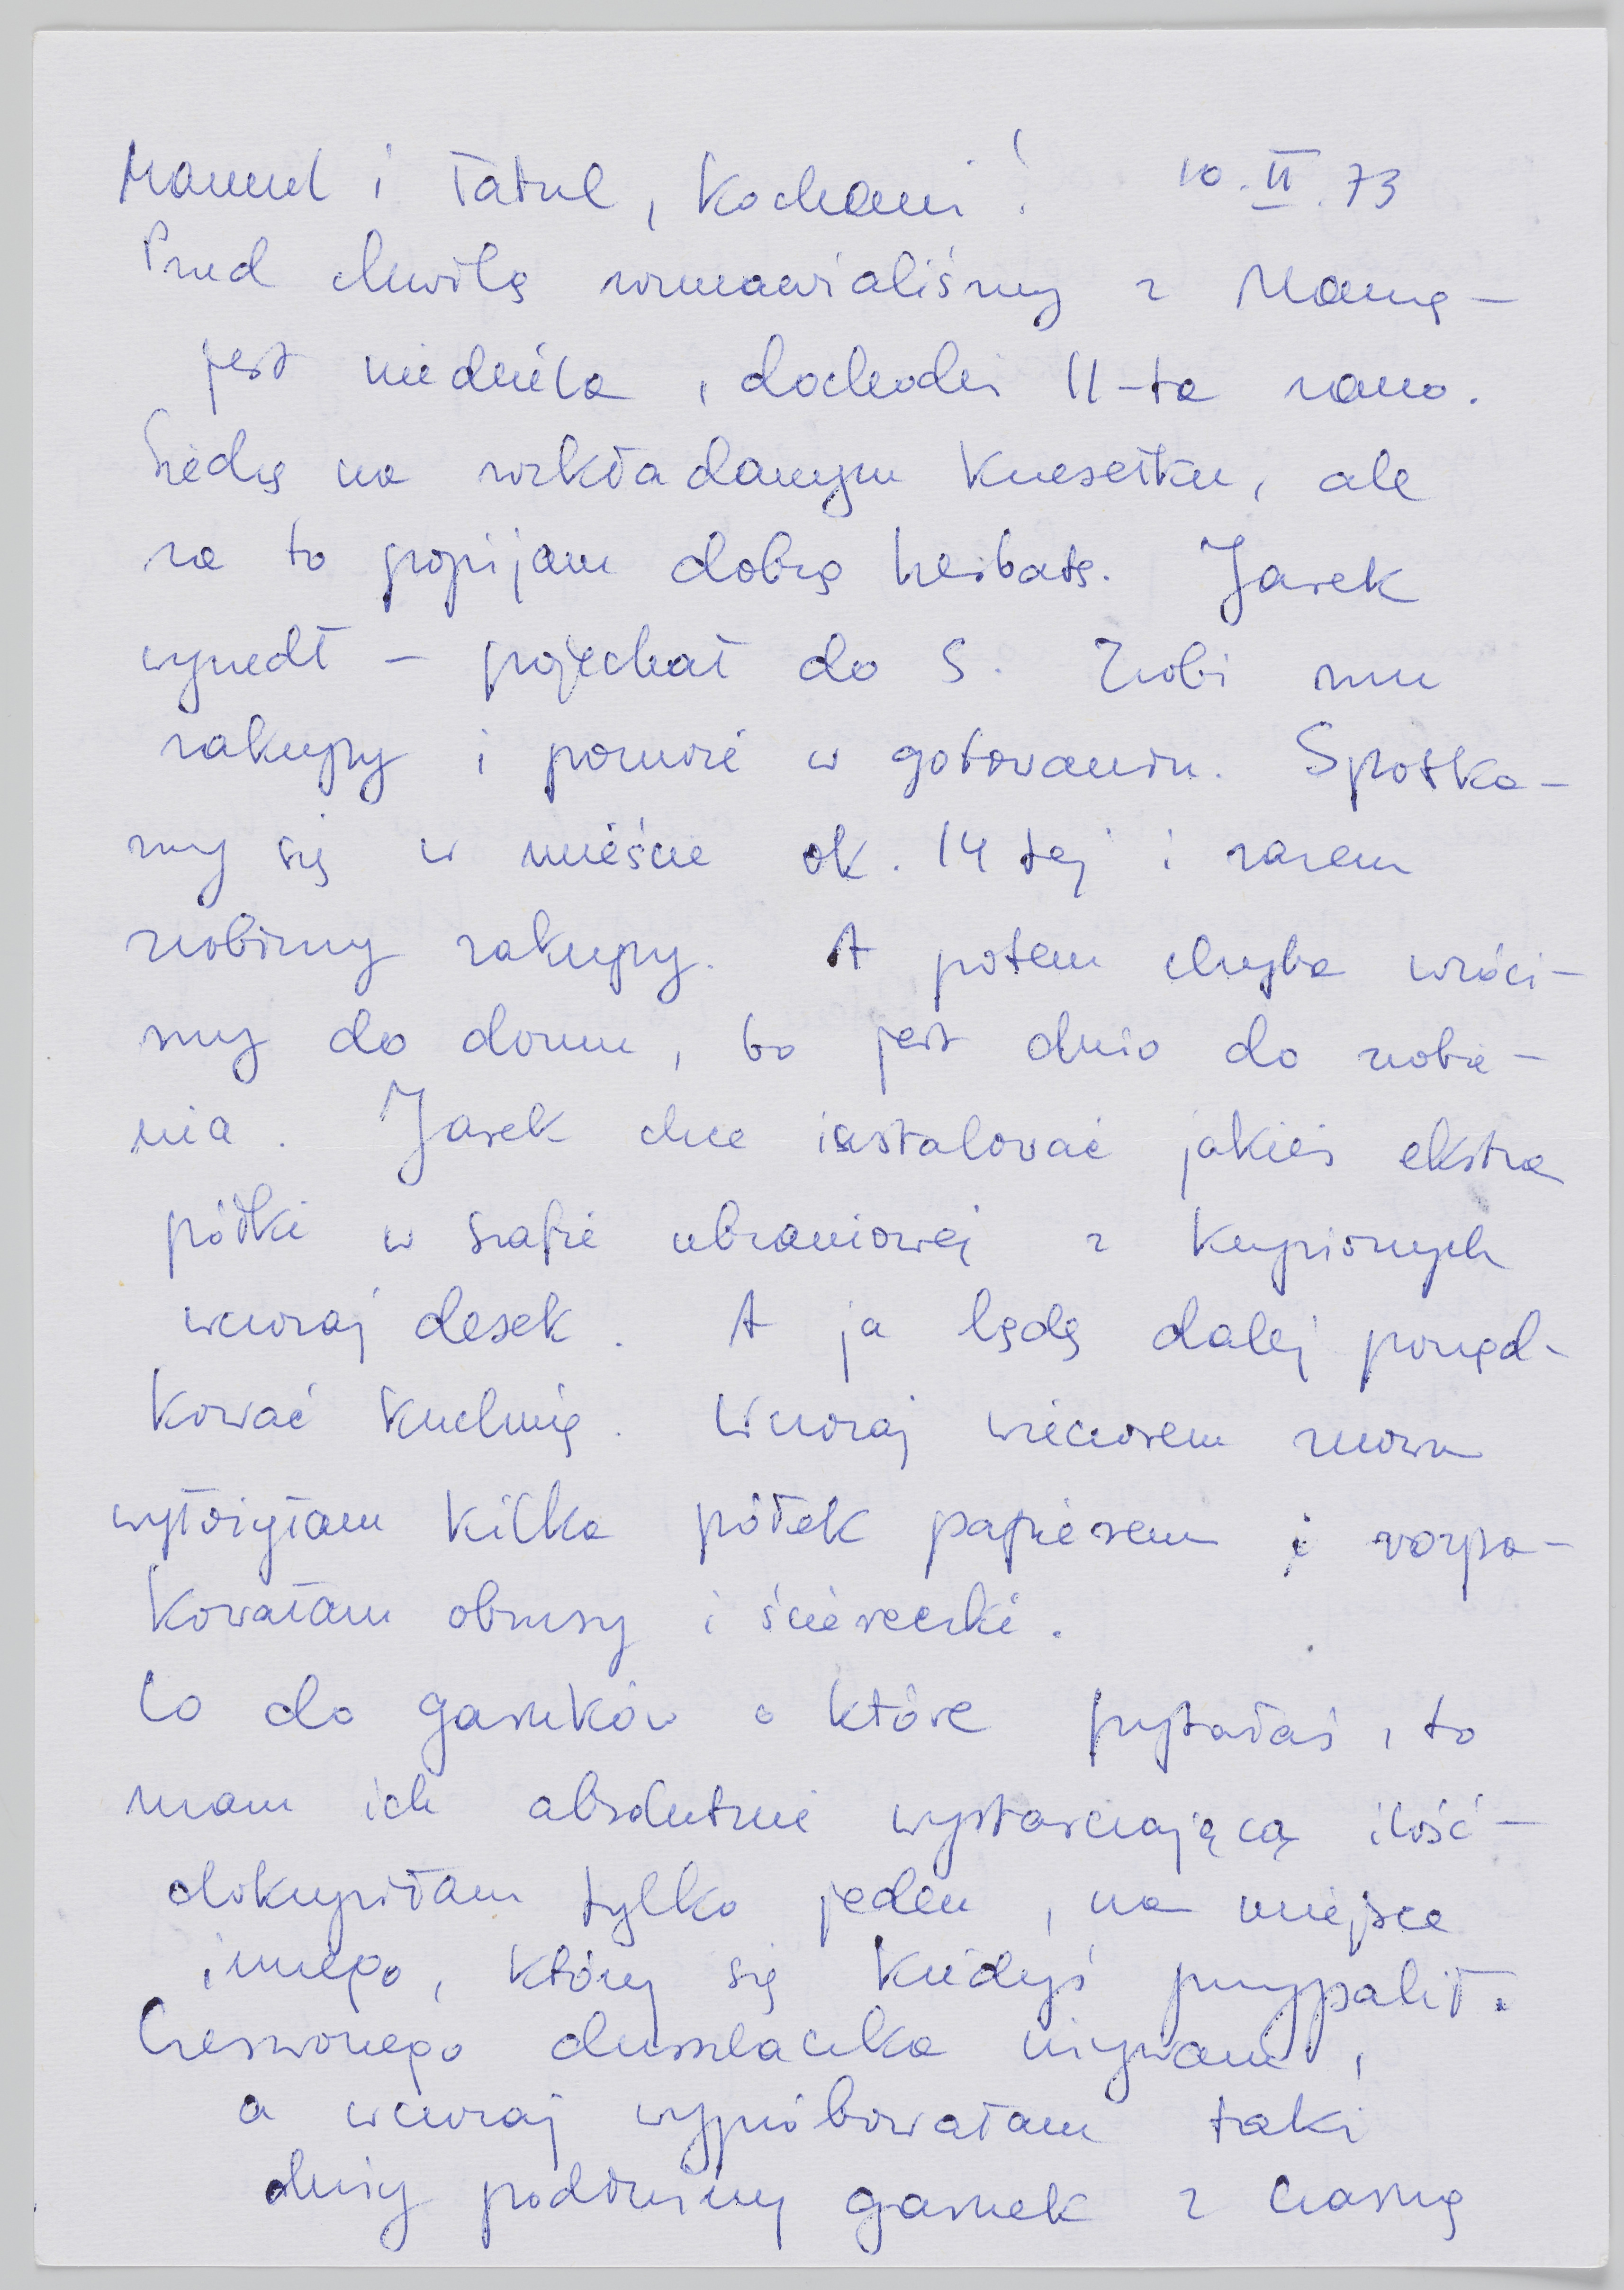 Mamul i Tatul, Kochani! 10.II.73
Przed chwilą rozmawialiśmy z Mamą –
jest niedziela, dochodzi 11-ta rano.
Siedzę na rozkładanym krzesełku, ale
za to popijam dobrą herbatę. Jarek
wyszedł – pojechał do S. Zrobi mu
zakupy i pomoże w gotowaniu. Spotka-
my się w mieście ok. 14 tej i razem
zrobimy zakupy. A potem chyba wróci-
my do domu, bo jest dużo do zrobie-
nia. Jarek chce instalować jakieś ekstra
półki w szafie ubraniowej z kupionych
wczoraj desek. A ja będę dalej porząd-
kować kuchnię. Wczoraj wieczorem znowu
wyłożyłam kilka półek papierem i rozpa-
kowałam obrusy i ściereczki.
Co do garnków o które pytałaś, to
mam ich absolutnie wystarczającą ilość –
dokupiłam tylko jeden, na miejsce
innego, który się kiedyś przypalił.
Czerwonego durszlaczka używam,
a wczoraj wypróbowałam taki
duży podłużny garnek z czarną